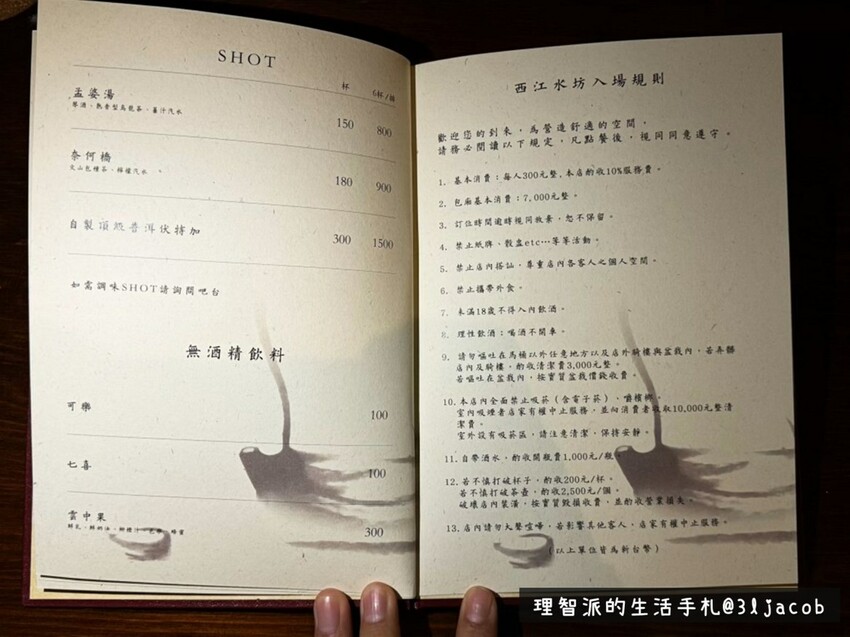 SHOT
杯 6杯/組
孟婆湯
琴酒、熟香型烏龍茶、薑汁汽水
150 800
奈何橋
文山包種茶、檸檬汽水
180 900
自製頂級普洱伏特加
300 1500
如需調味SHOT請詢問吧台
無酒精飲料
可樂
100
七喜
100
雲中果
300
西江水坊入場規則
歡迎您的到來，為營造舒適的空間，
請務必閱讀以下規定，凡點餐後，視同同意遵守。
1. 基本消費：每人300元整，本店酌收10%服務費。
2. 包廂基本消費：7,000元整。
3. 訂位時間逾時視同放棄，恕不保留。
4. 禁止紙牌、骰盅etc…等等活動。
5. 禁止店內搭訕，尊重店內各客人之個人空間。
6. 禁止攜帶外食。
7. 未滿18歲不得入內飲酒。
8. 理性飲酒：喝酒不開車。
9. 請勿嘔吐在馬桶以外任意地方以及店外騎樓與盆栽內，若弄髒
店內及騎樓，酌收清潔費3,000元整。
若嘔吐在盆栽內，按實質盆栽價錢收費。
10. 本店內全面禁止吸菸（含電子菸）、嚼檳榔。
室內吸煙者店家有權中止服務，並向消費者收取10,000元整清
潔費。
室外設有吸菸區，請注意清潔，保持安靜。
11. 自帶酒水，酌收開瓶費1,000元/瓶。
12. 若不慎打破杯子，酌收200元/杯。
若不慎打破茶壺，酌收2,500元/個。
破壞店內裝潢，按實質毀損收費，並酌收營業損失。
13. 店內請勿大聲喧嘩，若影響其他客人，店家有權中止服務。
（以上單位皆為新台幣）
理智派的生活手札@3ljacob